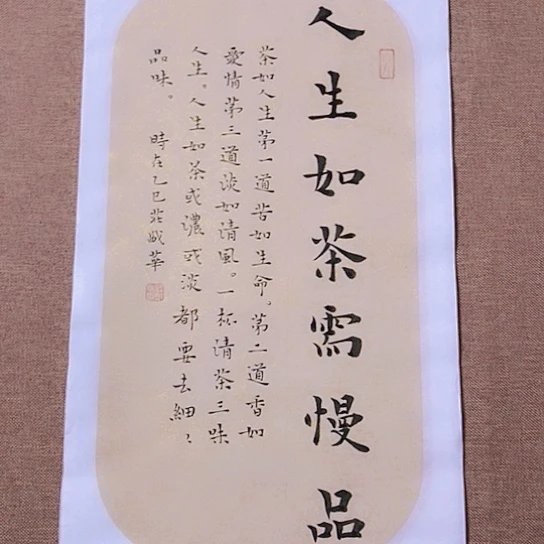 人生如茶需慢品
茶如人生第一道苦如生命。第二道香如
愛情第三道淡如清風。一杯清茶三味
人生。人生如茶或濃或淡都要去細〻
品味。
時在乙巳